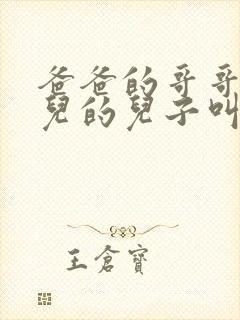 爸爸的哥哥
兒的兒子叫
王倉寶